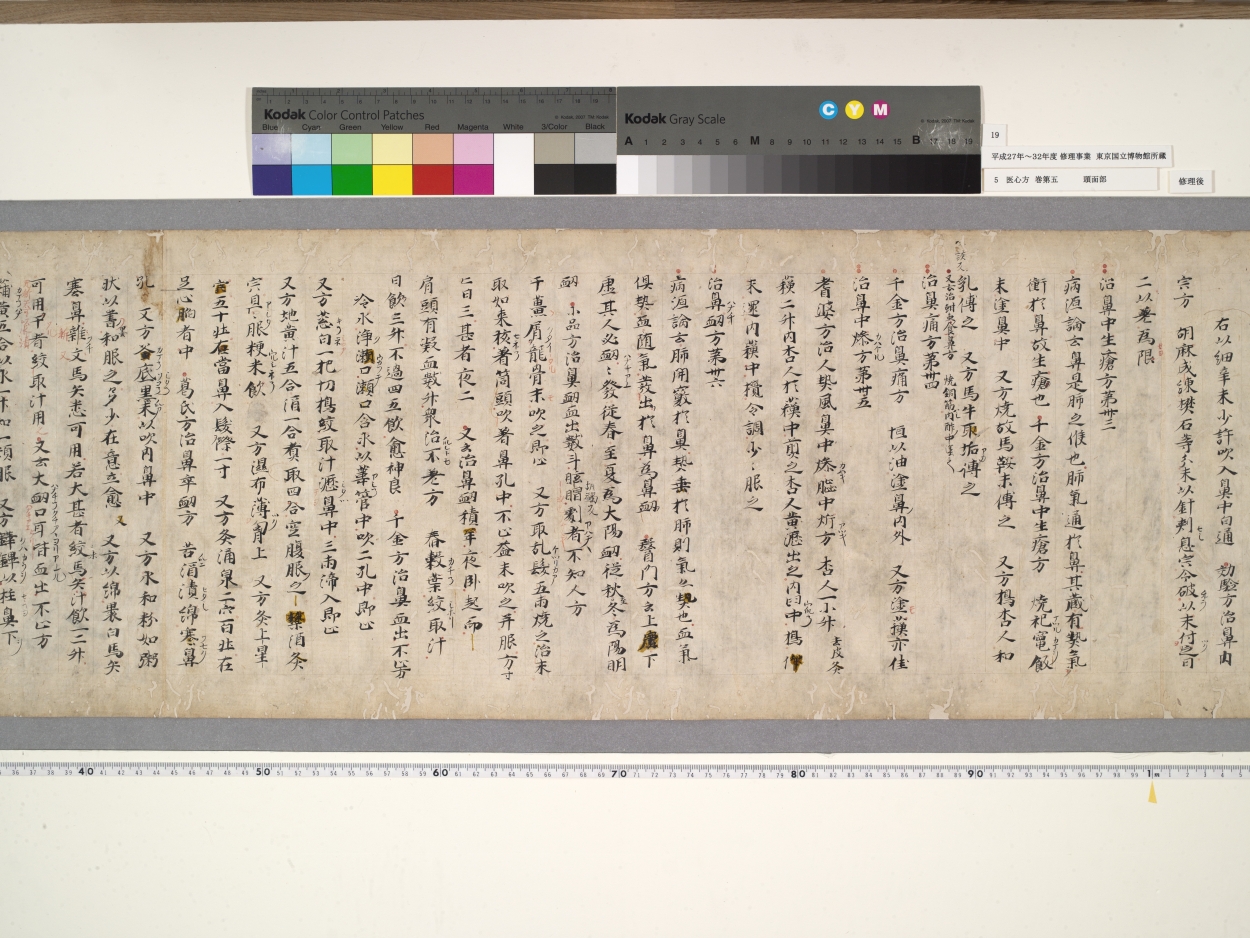 Kodak Color Control Patches
Blue Cyan Green Yellow Red Magenta White 3/Color Black
Kodak Gray Scale
C Y M
A 1 2 3 4 5 6 M 8 9 10 11 12 13 14 15 B 17 18 19
19
平成27年～32年度 修理事業 東京国立博物館所蔵
5 医心方 巻第五 頭面部
修理後
右以細辛末少許吹入鼻中自通 効驗方治鼻內
宍方 胡麻或練礬石等分末以針刺息宍令破以末付之日
二以差為限
治鼻中生瘡方第卅三
病源論云鼻是肺之候也肺氣通於鼻其藏有熱氣
衝於鼻故生瘡也 千金方治鼻中生瘡方 燒祀竈飯
末塗鼻中 又方燒故馬鞍末傅之 又方搗杏人和
乳傅之 又方馬牛耳垢傅之
治鼻痛方第卅四
千金方治鼻痛方 恒以油塗鼻內外 又方塗蘓亦佳
治鼻中燥方第卅五
耆婆方治人熱風鼻中燥腦中方 杏人一小升 去皮尖
蘓二升內杏人於蘓中煎之杏人黃瀝出之內臼中搗作
末還內蘓中攪令調少々服之
治鼻衄方第卅六
病源論云肺開竅於鼻熱乗於肺則氣亦熱也血氣
俱熱血随氣發出於鼻為鼻衄 醫門方云上虚下
虚其人必衄々發從春至夏為大陽衄從秋冬為陽明
衄 小品方治鼻衄血出數斗眩冒劇者不知人方
干薑屑龍骨末吹之即止 又方取乱髮五兩燒之末
取如棗核著筒頭吹著鼻孔中不止益末吹之并服方寸
匕日三甚者夜二 又云治鼻衄積年夜卧起而
肩頭有凝血數升衆治不差方 舂穀葉絞取汁
日飲三升不過四五飲愈神良 千金方治鼻血出不止方
冷水浄漱口瀬口含水以葦管中吹二孔中即止
又方葱白一把切搗絞取汁瀝鼻中三兩渧入即止
又方地黃汁五合酒一合煮取四合空腹服之禁酒灸
宍具服粳米飲 又方濕布薄胷上 又方灸上星
五十壯在當鼻入髮際一寸 又方灸涌泉二穴百壯在
足心脚者中 葛氏方治鼻卒衄方 苦酒漬綿塞鼻
孔 又方釜底墨末以吹內鼻中 又方水和粉如粥
状以蓄和服之多少在意立愈 又方以綿裹白馬矢
塞鼻雜文馬矢悉可用若大甚者絞馬矢汁飲一二升
可用干者絞取汁用 又云大衄口耳皆血出不止方
蒲黃五合以水一升和一頓服